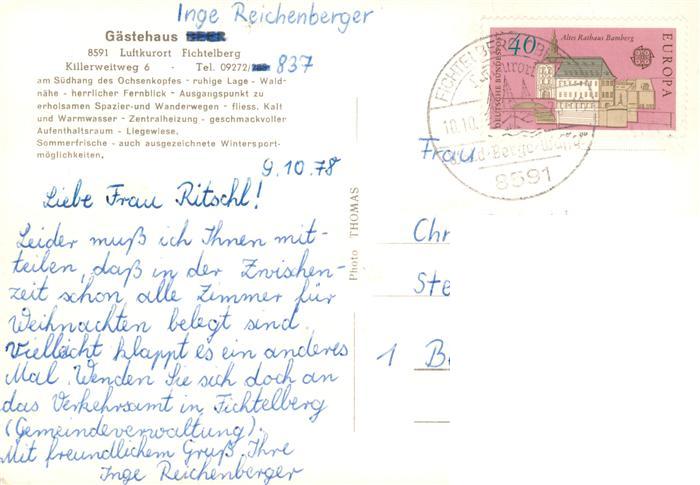 Inge Reichenberger
Gästehaus
8591 Luftkurort Fichtelberg
Killerweitweg 6 - Tel. 09272/ 837
am Südhang des Ochsenkopfes - ruhige Lage - Wald-
nähe - herrlicher Fernblick - Ausgangspunkt zu
erholsamen Spazier-und Wanderwegen - fliess. Kalt
und Warmwasser - Zentralheizung - geschmackvoller
Aufenthaltsraum - Liegewiese.
Sommerfrische - auch ausgezeichnete Wintersport-
möglichkeiten.
9.10.78
Liebe Frau Ritschl!
Leider muß ich Ihnen mit-
teilen, daß in der Zwischen-
zeit schon alle Zimmer für
Weihnachten belegt sind.
Vielleicht klappt es ein anderes
Mal. Wenden Sie sich doch an
das Verkehrsamt in Fichtelberg
(Gemeindeverwaltung).
Mit freundlichem Gruß Ihre
Inge Reichenberger
Photo THOMAS
DEUTSCHE BUNDESPOST
40
Altes Rathaus Bamberg
EUROPA
FICHTELBERG
Luftkurort
10.10.
8591
Frau
Chr
Ste
1 Be